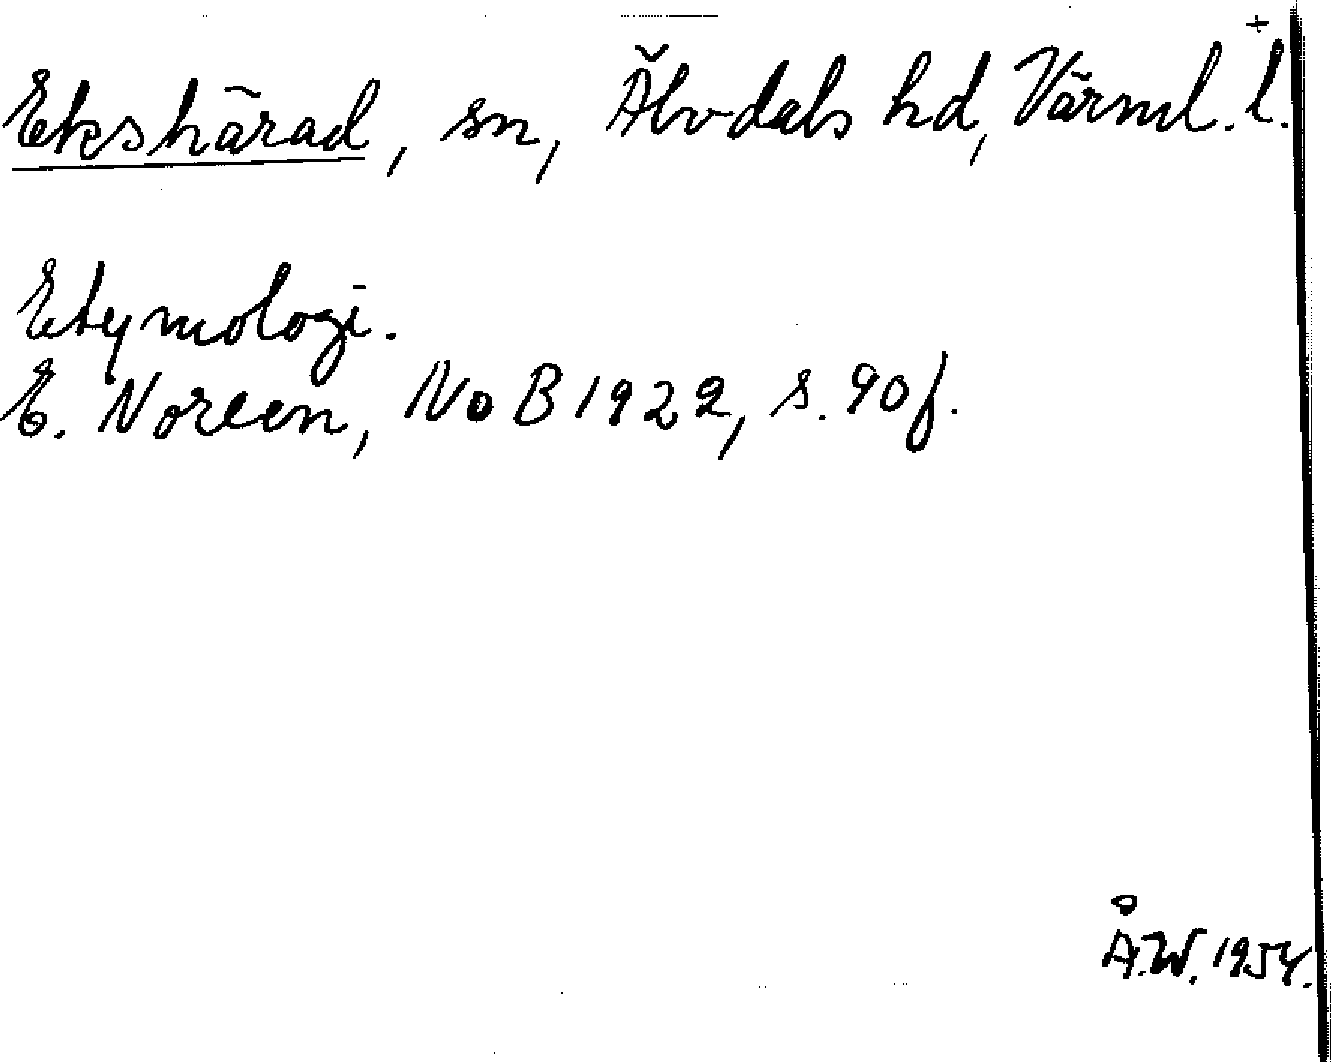 +
Ekshärad, sn, Älvdals hd, Värml. l.
Etymologi.
E. Noreen, NoB 1922, s. 90f.
Å.W. 1954.